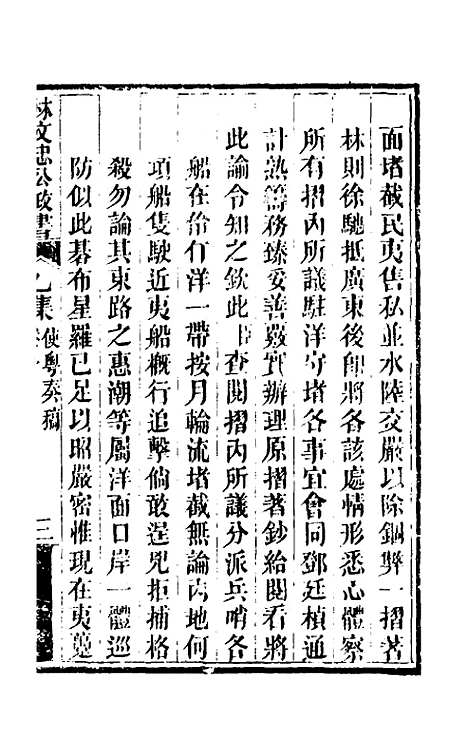 面堵截民夷售私並水陸交嚴以除錮弊一摺著
林則徐馳抵廣東後卽將各該處情形悉心體察
所有摺內所議駐洋守堵各事宜會同鄧廷楨通
計熟籌務臻妥善嚴實辦理原摺著鈔給閱看將
此諭令知之欽此臣查閱摺內所議分派兵哨各
船在伶仃洋一帶按月輪流堵截無論內地何
項船隻駛近夷船槪行追擊倘敢逞兇拒捕格
殺勿論其東路之惠潮等屬洋面口岸一體巡
防似此碁布星羅已足以昭嚴密惟現在夷躉
林文忠公政書 乙集 使粤奏稿 三